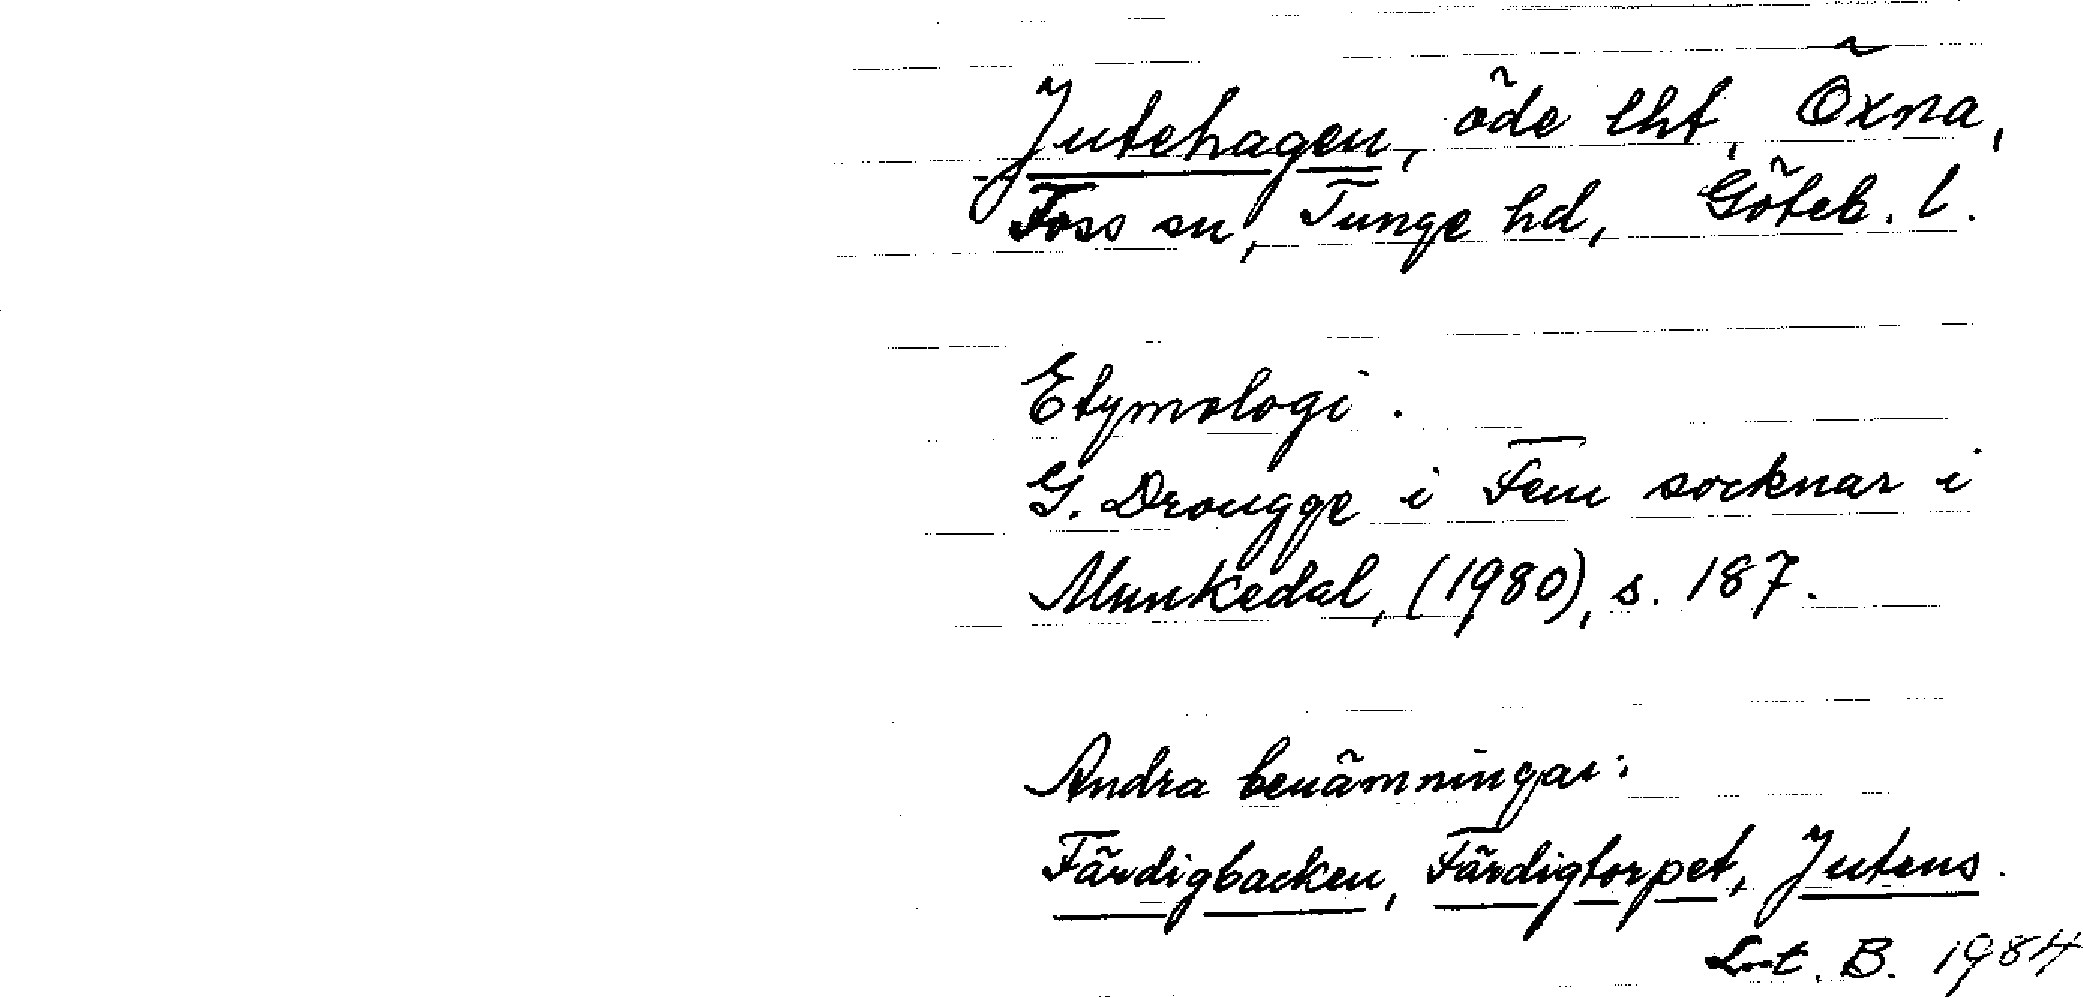 Jutehagen, öde lht, Öxna,
Foss sn, Tunge hd, Göteb. l.
Etymologi.
G. Drougge i Fem socknar i
Munkedal, (1980), s. 187.
Andra benämningar:
Färdigbacken, Färdigtorpet, Jutens.
Lrt. B. 1984